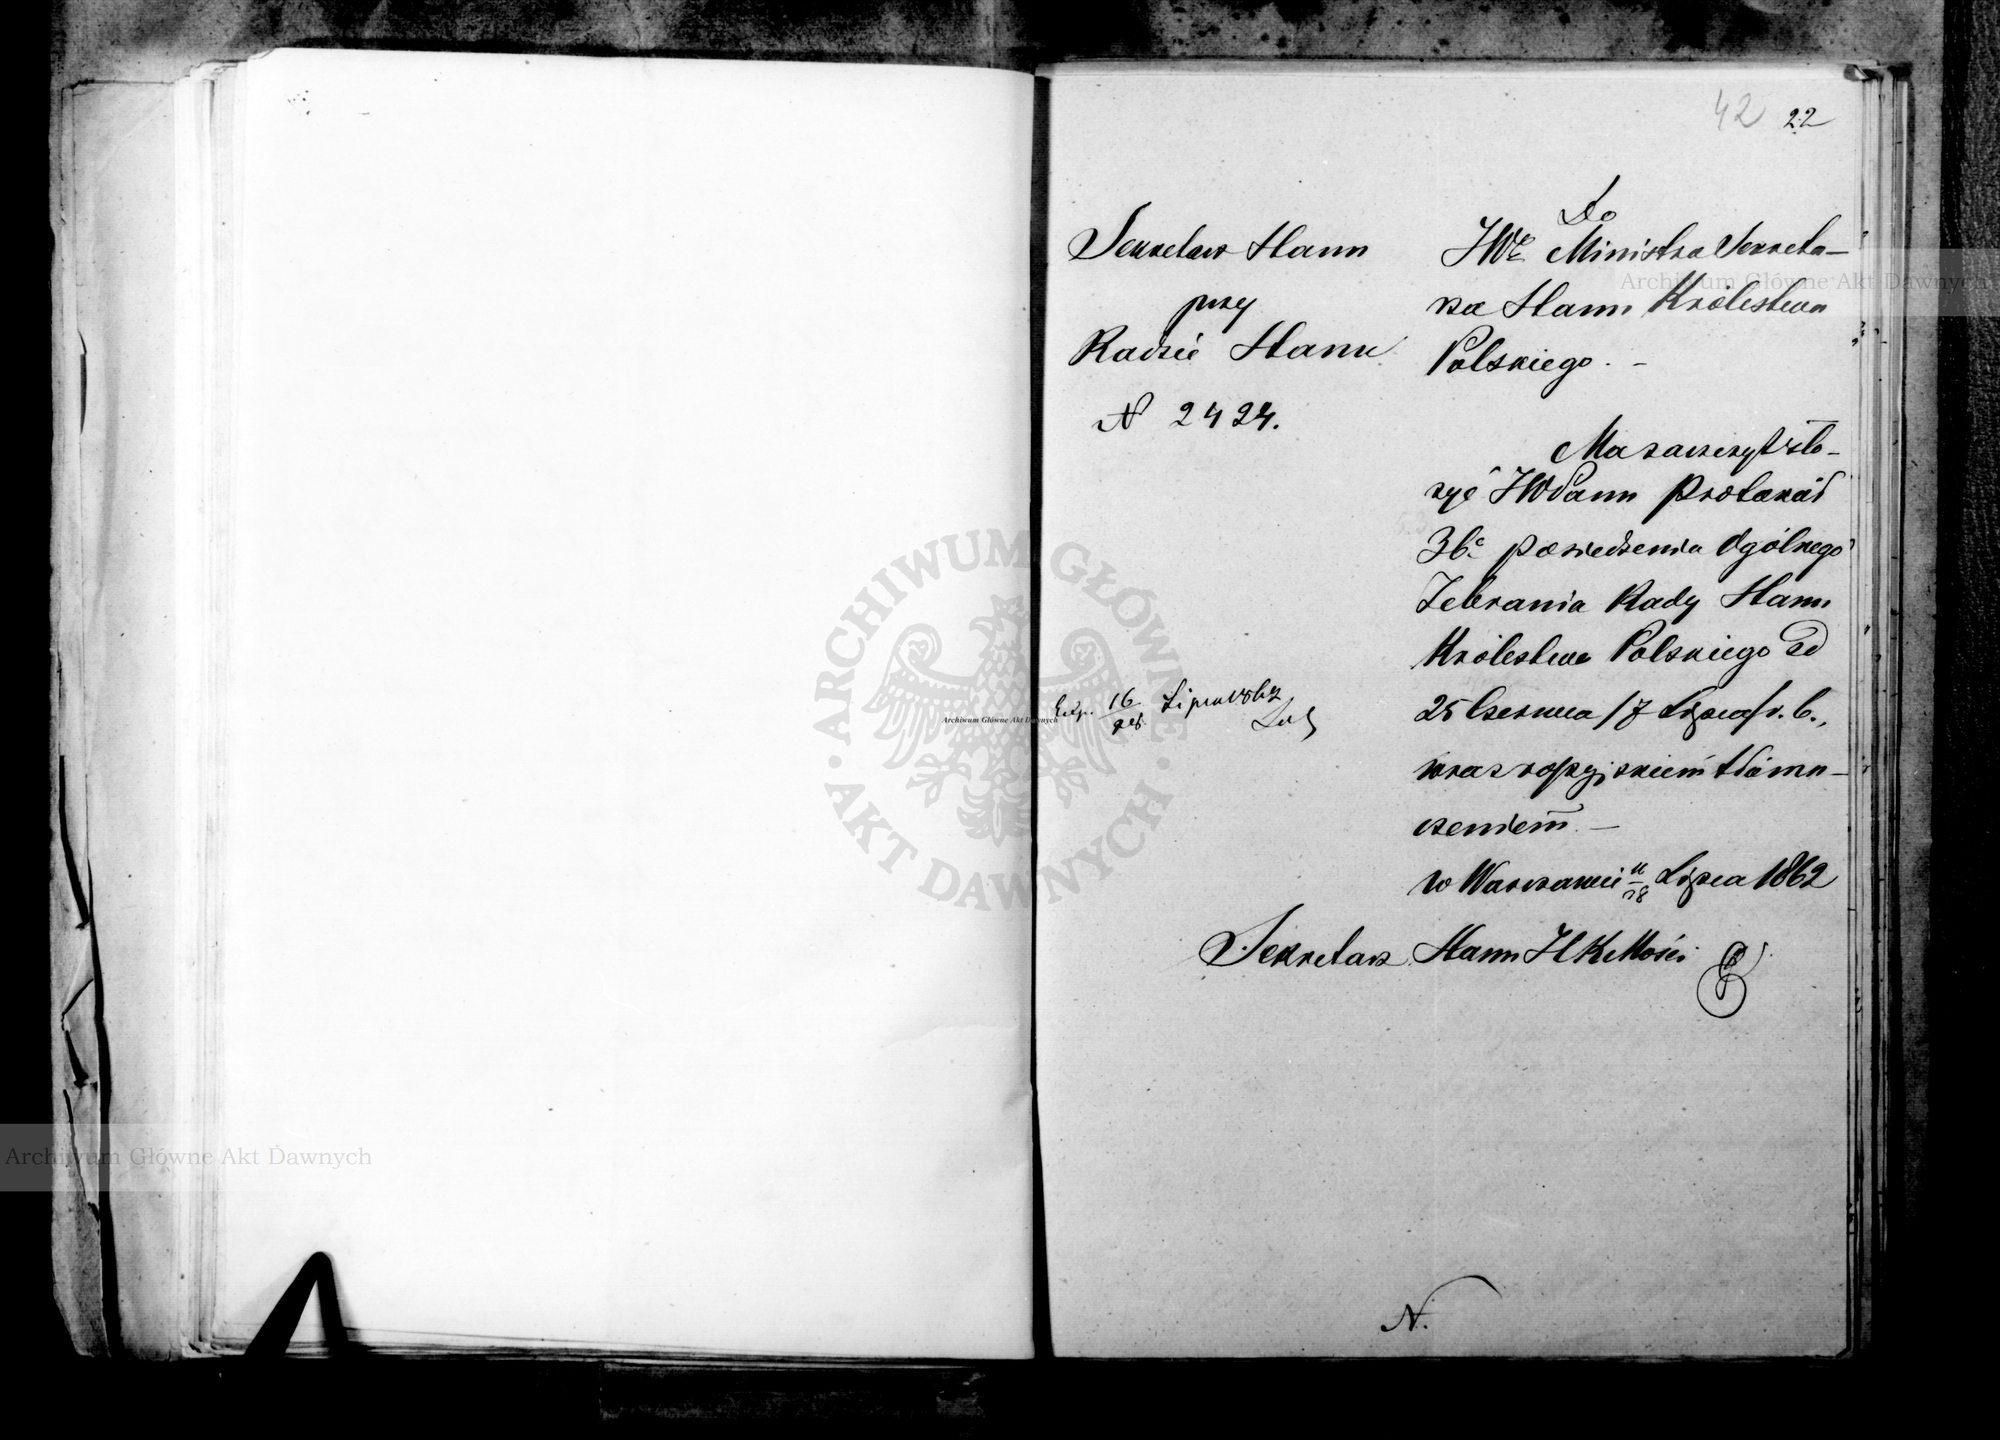 42 22
Sekretarz Stanu
przy
Radzie Stanu
N 2424.
Do
JWo Ministra Sekreta-
rza Stanu Królestwa
Polskiego. -
Ma zaszczyt zło-
żyć JWPanu Protokół
36o posiedzenia Ogólnego
Zebrania Rady Stanu
Królestwa Polskiego z d
25 Czerwca /7 Lipca/ r. b.,
wraz z rossyjskiem tłóma-
czeniem. -
w Warszawie Lipca 1862
Sekretarz Stanu JCKMości
Exp. 16 Lipca 1862
N.
ARCHIWUM GŁÓWNE
· AKT DAWNYCH ·
Archiwum Główne Akt Dawnych
Archiwum Główne Akt Dawnych
Archiwum Główne Akt Dawnych